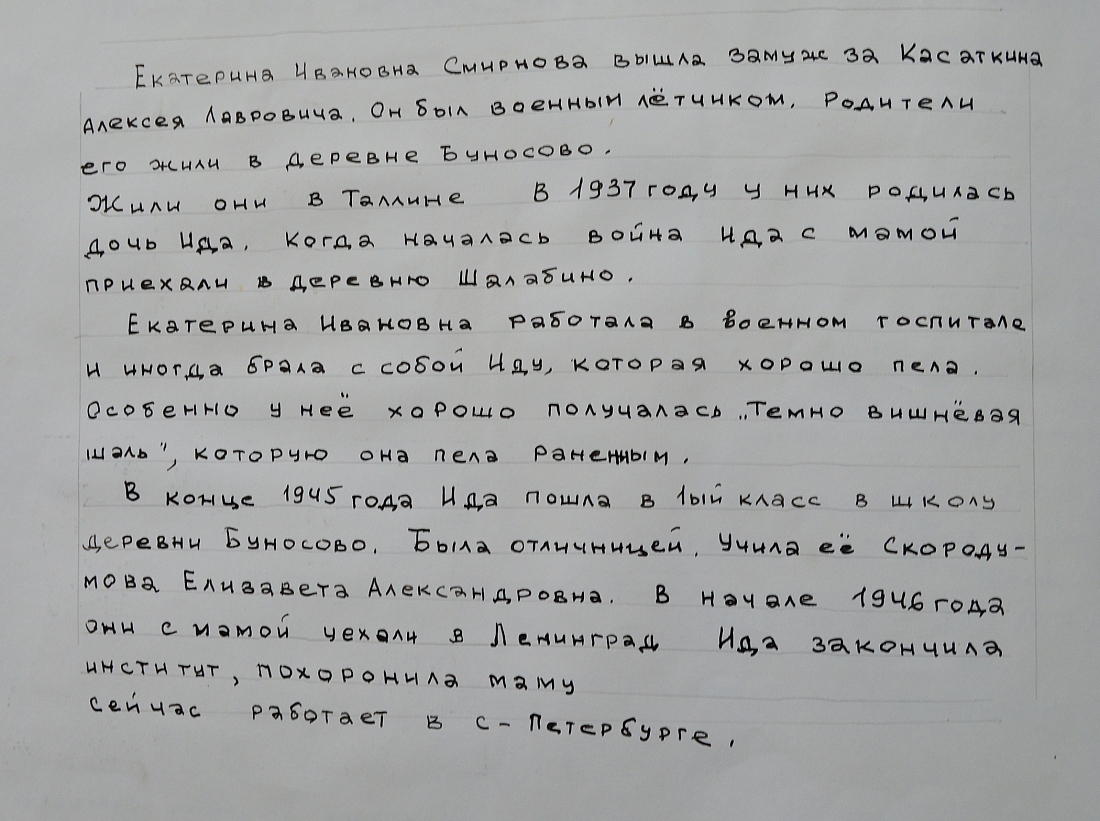 Екатерина Ивановна Смирнова вышла замуж за Касаткина
Алексея Лавровича. Он был военным лётчиком. Родители
его жили в деревне Буносово.
Жили они в Таллине В 1937 году у них родилась
дочь Ида. Когда началась война Ида с мамой
приехали в деревню Шалабино.
Екатерина Ивановна работала в военном госпитале
и иногда брала с собой Иду, которая хорошо пела.
Особенно у неё хорошо получалась „Темно вишнёвая
шаль”, которую она пела раненным.
В конце 1945 года Ида пошла в 1ый класс в школу
деревни Буносово. Была отличницей. Учила её Скороду-
мова Елизавета Александровна. В начале 1946 года
они с мамой уехали в Ленинград Ида закончила
институт, похоронила маму
сейчас работает в С-Петербурге.